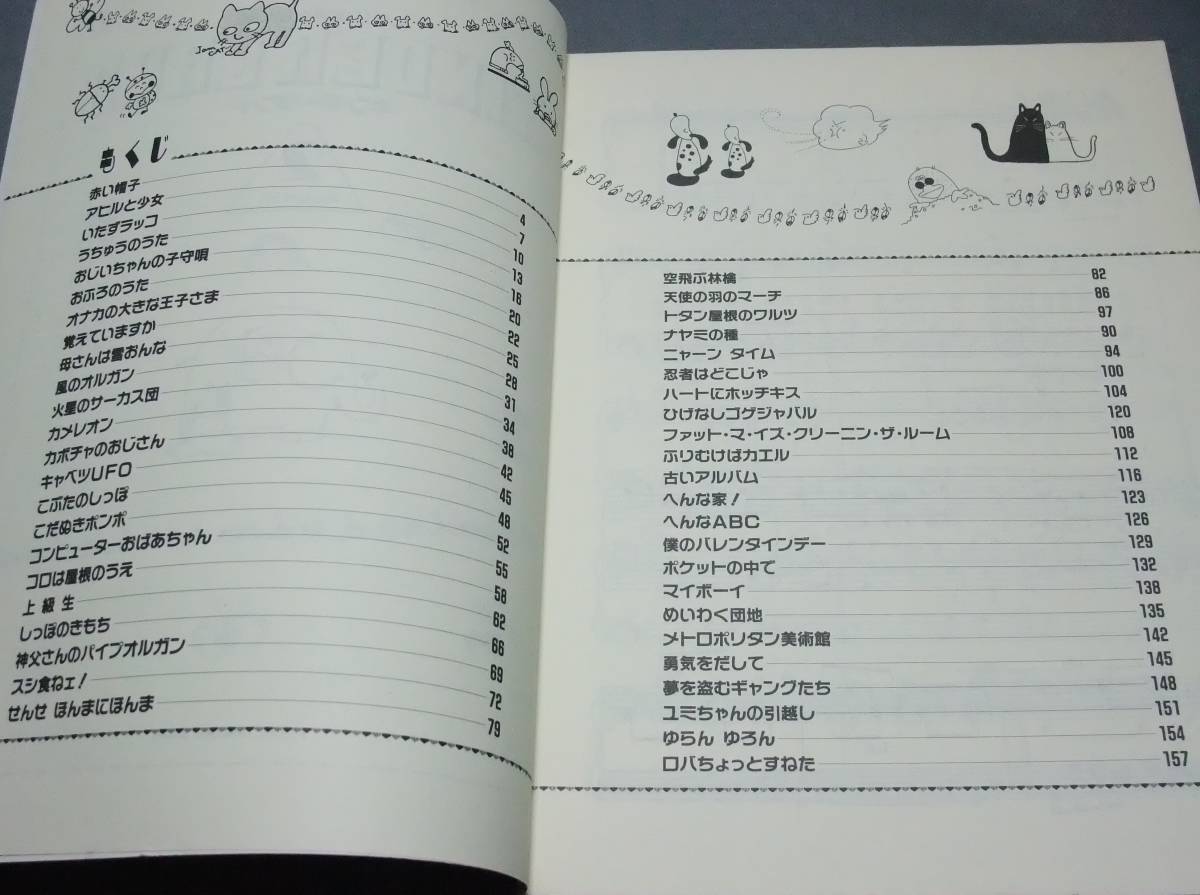 もくじ
赤い帽子 4
アヒルと少女 7
いたずラッコ 10
うちゅうのうた 13
おじいちゃんの子守唄 16
おふろのうた 20
オナカの大きな王子さま 22
覚えていますか 25
母さんは雪おんな 28
風のオルガン 31
火星のサーカス団 34
カメレオン 38
カボチャのおじさん 42
キャベツUFO 45
こぶたのしっぽ 48
こだぬきポンポ 52
コンピューターおばあちゃん 55
コロは屋根のうえ 58
上級生 62
しっぽのきもち 66
神父さんのパイプオルガン 69
スシ食ねェ! 72
せんせ ほんまにほんま 79
空飛ぶ林檎 82
天使の羽のマーチ 86
トタン屋根のワルツ 97
ナヤミの種 90
ニャーン タイム 94
忍者はどこじゃ 100
ハートにホッチキス 104
ひげなしゴゲジャバル 120
ファット・マ・イズ・クリーニン・ザ・ルーム 108
ふりむけばカエル 112
古いアルバム 116
へんな家! 123
へんなABC 126
僕のバレンタインデー 129
ポケットの中で 132
マイボーイ 138
めいわく団地 135
メトロポリタン美術館 142
勇気をだして 145
夢を盗むギャングたち 148
ユミちゃんの引越し 151
ゆらん ゆろん 154
ロバちょっとすねた 157